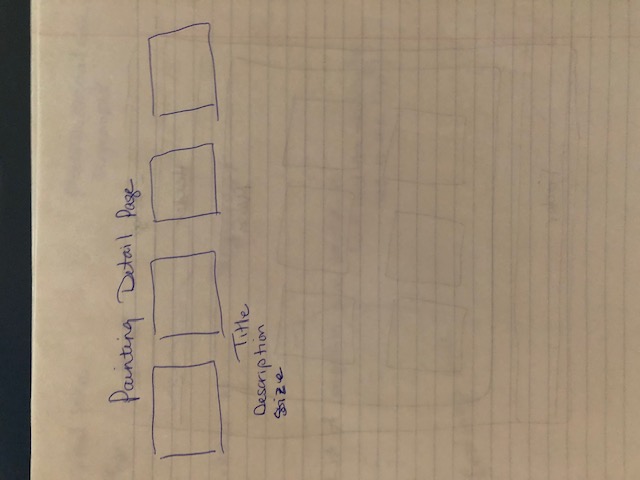 Painting Detail Page
Title
Description
Size